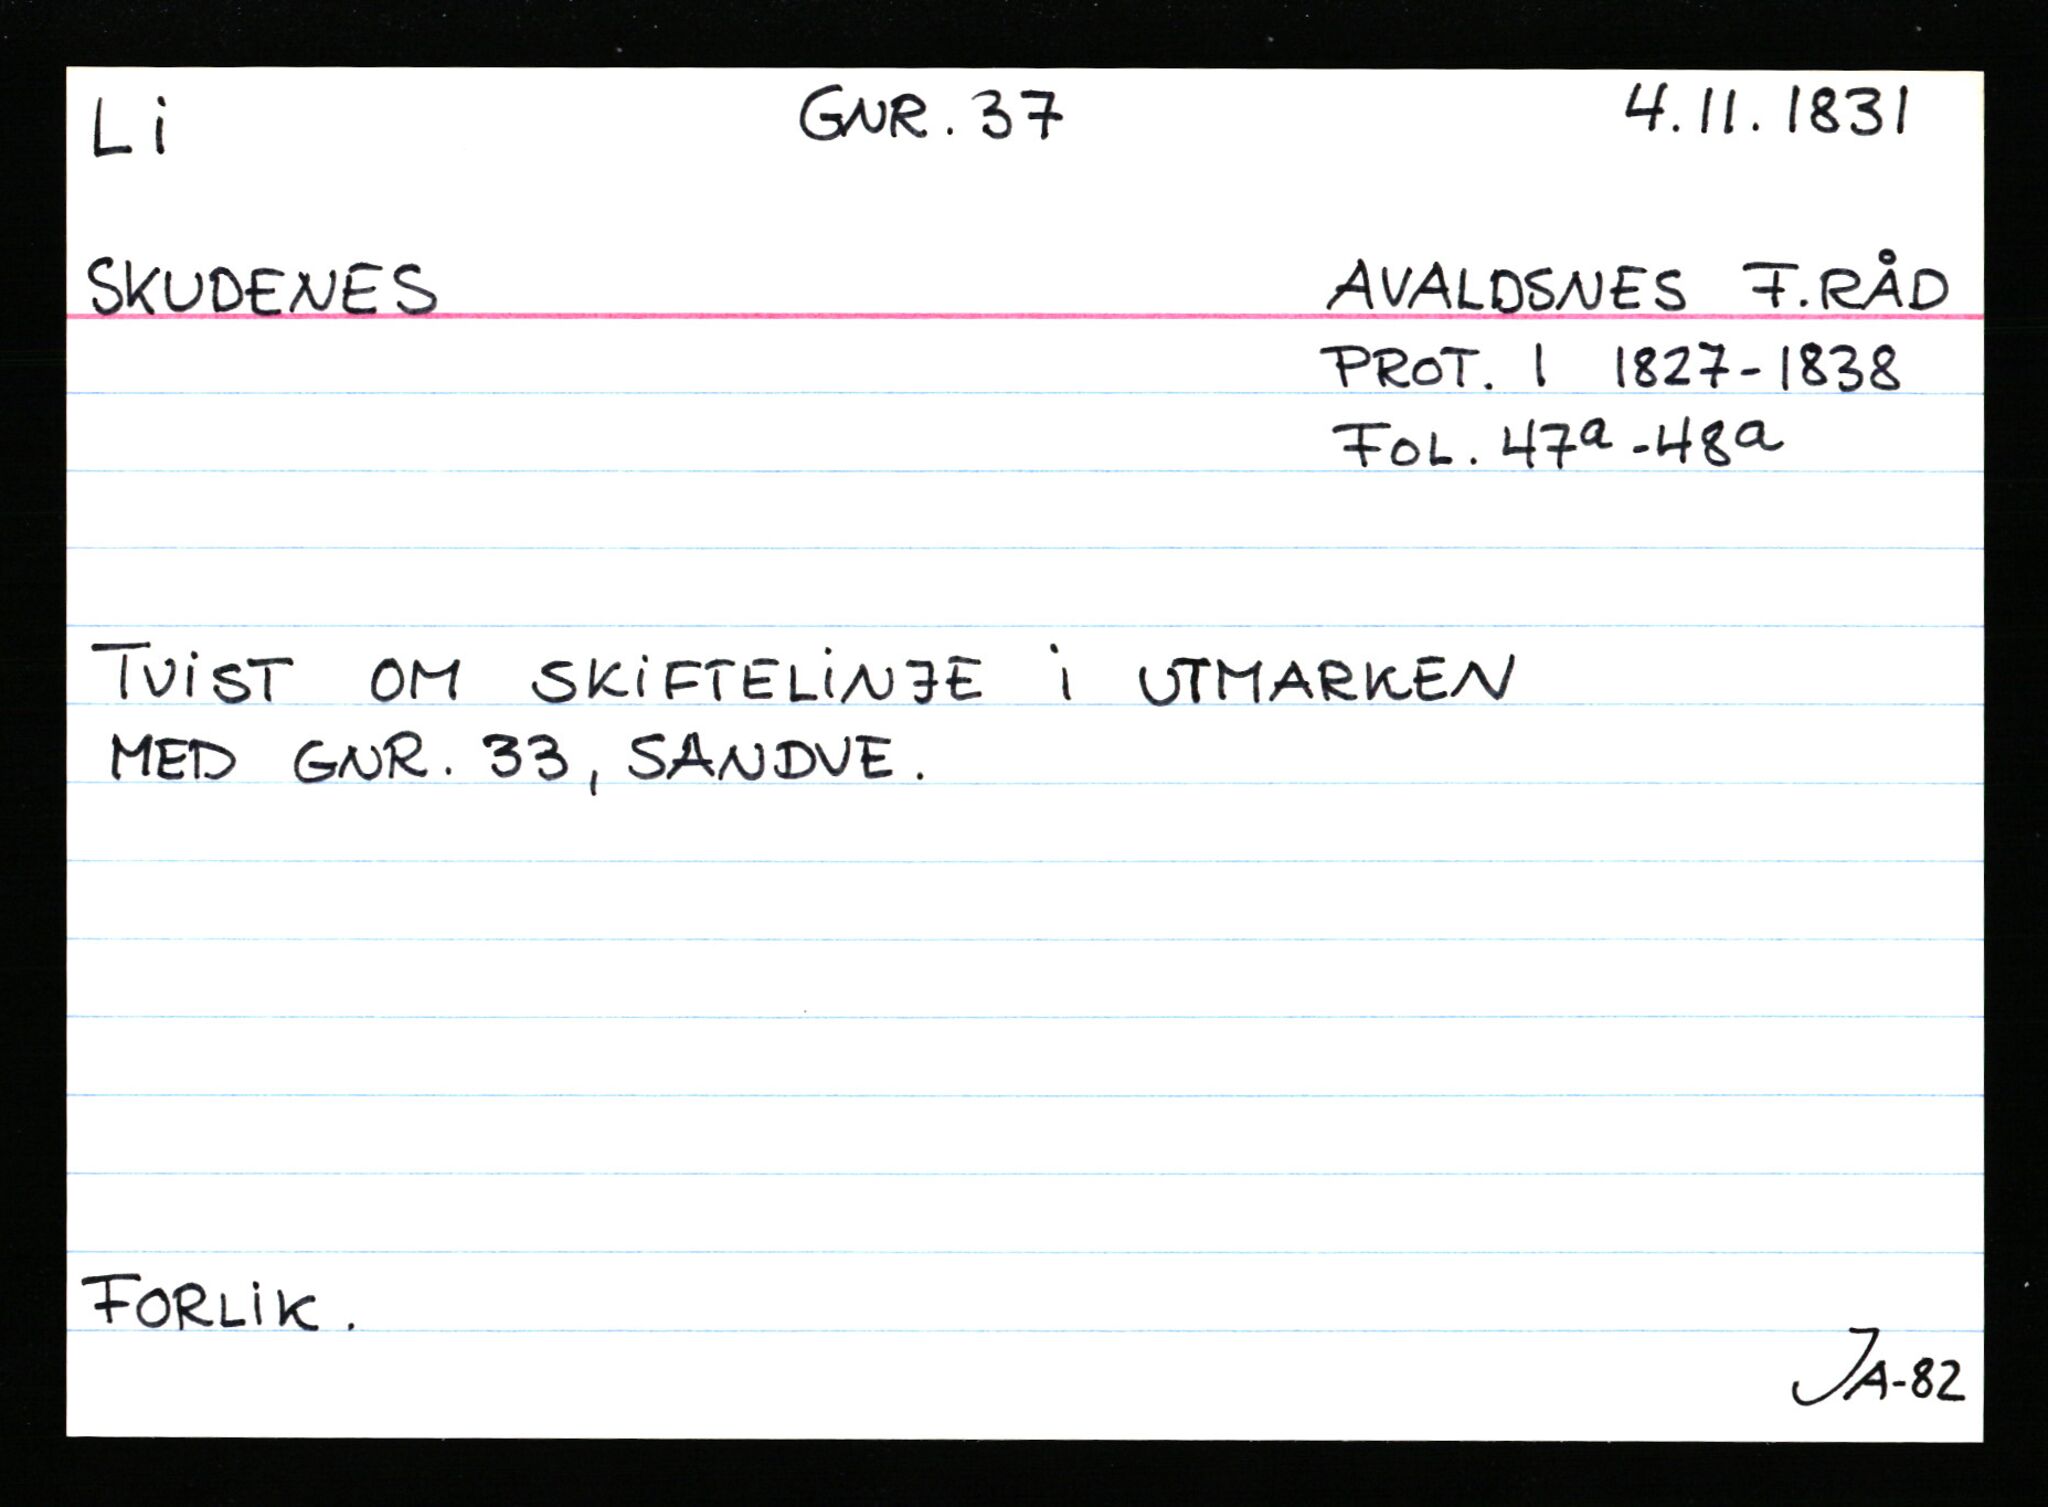 Li GNR. 37 4.11.1831
SKUDENES AVALDSNES F.RÅD
PROT. 1 1827-1838
FOL. 47a-48a
TVIST OM SKIFTELINJE I UTMARKEN
MED GNR. 33, SANDVE.
FORLIK.
JA-82